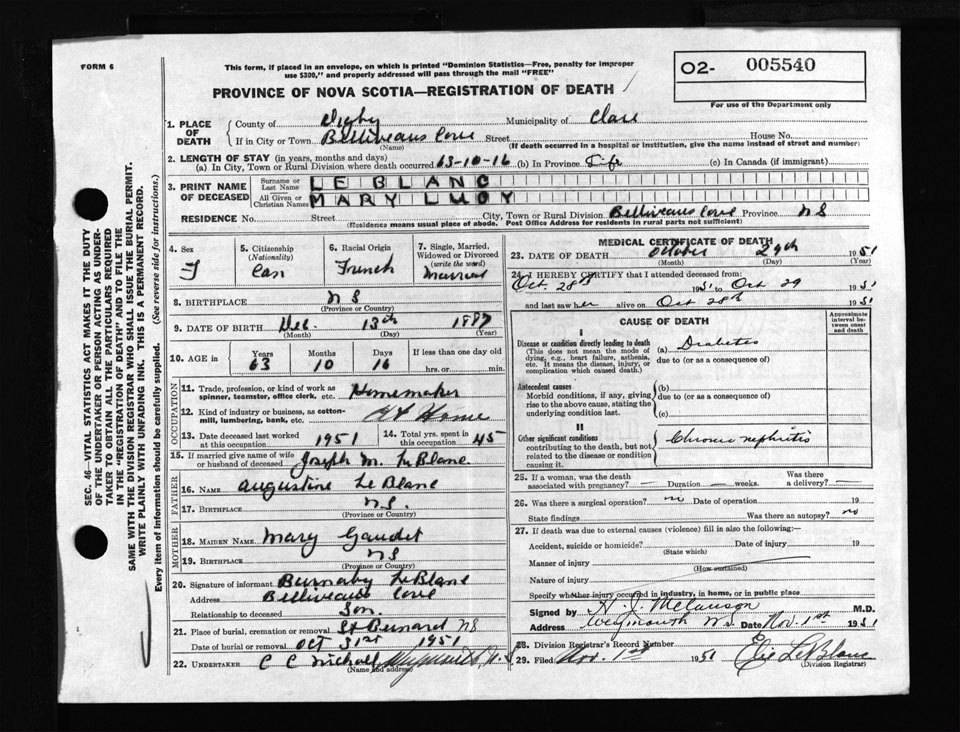 FORM 6
This form, if placed in an envelope, on which is printed "Dominion Statistics—Free, penalty for improper
use $300," and properly addressed will pass through the mail "FREE"
PROVINCE OF NOVA SCOTIA—REGISTRATION OF DEATH
O2- 005540
For use of the Department only
1. PLACE OF DEATH
County of Digby Municipality of Clare
If in City or Town Belliveaus Cove Street House No.
(Name) (If death occurred in a hospital or institution, give the name instead of street and number)
2. LENGTH OF STAY (in years, months and days)
(a) In City, Town or Rural Division where death occurred 63-10-16 (b) In Province Life (c) In Canada (if immigrant)
3. PRINT NAME OF DECEASED
Surname or Last Name LE BLANC
All Given or Christian Names MARY LUCY
RESIDENCE No. Street City, Town or Rural Division Belliveaus Cove Province NS
(Residence means usual place of abode. Post Office Address for residents in rural parts not sufficient)
4. Sex F
5. Citizenship (Nationality) Can
6. Racial Origin French
7. Single, Married, Widowed or Divorced (write the word) Married
8. BIRTHPLACE NS
(Province or Country)
9. DATE OF BIRTH Dec. 13th 1887
(Month) (Day) (Year)
10. AGE in Years 63 Months 10 Days 16 If less than one day old hrs. or min.
OCCUPATION
11. Trade, profession, or kind of work as spinner, teamster, office clerk, etc. Homemaker
12. Kind of industry or business, as cotton-mill, lumbering, bank, etc. At Home
13. Date deceased last worked at this occupation 1951
14. Total yrs. spent in this occupation 45
15. If married give name of wife or husband of deceased Joseph M. LeBlanc
FATHER
16. NAME Augustine LeBlanc
17. BIRTHPLACE NS.
(Province or Country)
MOTHER
18. MAIDEN NAME Mary Gaudet
19. BIRTHPLACE NS
(Province or Country)
20. Signature of informant Burnaby LeBlanc
Address Belliveaus Cove
Relationship to deceased Son.
21. Place of burial, cremation or removal St Bernard NS
Date of burial or removal OCT 31st 1951
22. UNDERTAKER C C Nichall Weymouth N.S
(Name and address)
MEDICAL CERTIFICATE OF DEATH
23. DATE OF DEATH October 29th 1951
(Month) (Day) (Year)
24. I HEREBY CERTIFY that I attended deceased from
Oct. 28th 1951 to Oct 29 1951
and last saw her alive on Oct 28th 1951
CAUSE OF DEATH
Approximate interval between onset and death
I
Disease or condition directly leading to death (a) Diabetes
(This does not mean the mode of dying, e.g., heart failure, asthenia, etc. It means the disease, injury, or complication which caused death.)
due to (or as a consequence of)
Antecedent causes (b)
Morbid conditions, if any, giving rise to the above cause, stating the underlying condition last.
due to (or as a consequence of)
(c)
II
Other significant conditions
contributing to the death, but not related to the disease or condition causing it.
Chronic nephritis
25. If a woman, was the death associated with pregnancy? — Duration — weeks. Was there a delivery? —
26. Was there a surgical operation? no Date of operation 19
State findings Was there an autopsy? no
27. If death was due to external causes (violence) fill in also the following:—
Accident, suicide or homicide? Date of injury 19
(State which)
Manner of injury
(How sustained)
Nature of injury
Specify whether injury occurred in industry, in home, or in public place
Signed by H. J. Melanson M.D.
Address Weymouth NS. Date Nov. 1st 1951
28. Division Registrar's Record Number
29. Filed Nov. 1st 1951 Elie LeBlanc
(Division Registrar)
SEC. 46—VITAL STATISTICS ACT MAKES IT THE DUTY
OF THE UNDERTAKER OR PERSON ACTING AS UNDER-
TAKER TO OBTAIN ALL THE PARTICULARS REQUIRED
IN THE "REGISTRATION OF DEATH" AND TO FILE THE
SAME WITH THE DIVISION REGISTRAR WHO SHALL ISSUE THE BURIAL PERMIT.
WRITE PLAINLY WITH UNFADING INK. THIS IS A PERMANENT RECORD.
Every item of information should be carefully supplied. (See reverse side for instructions.)